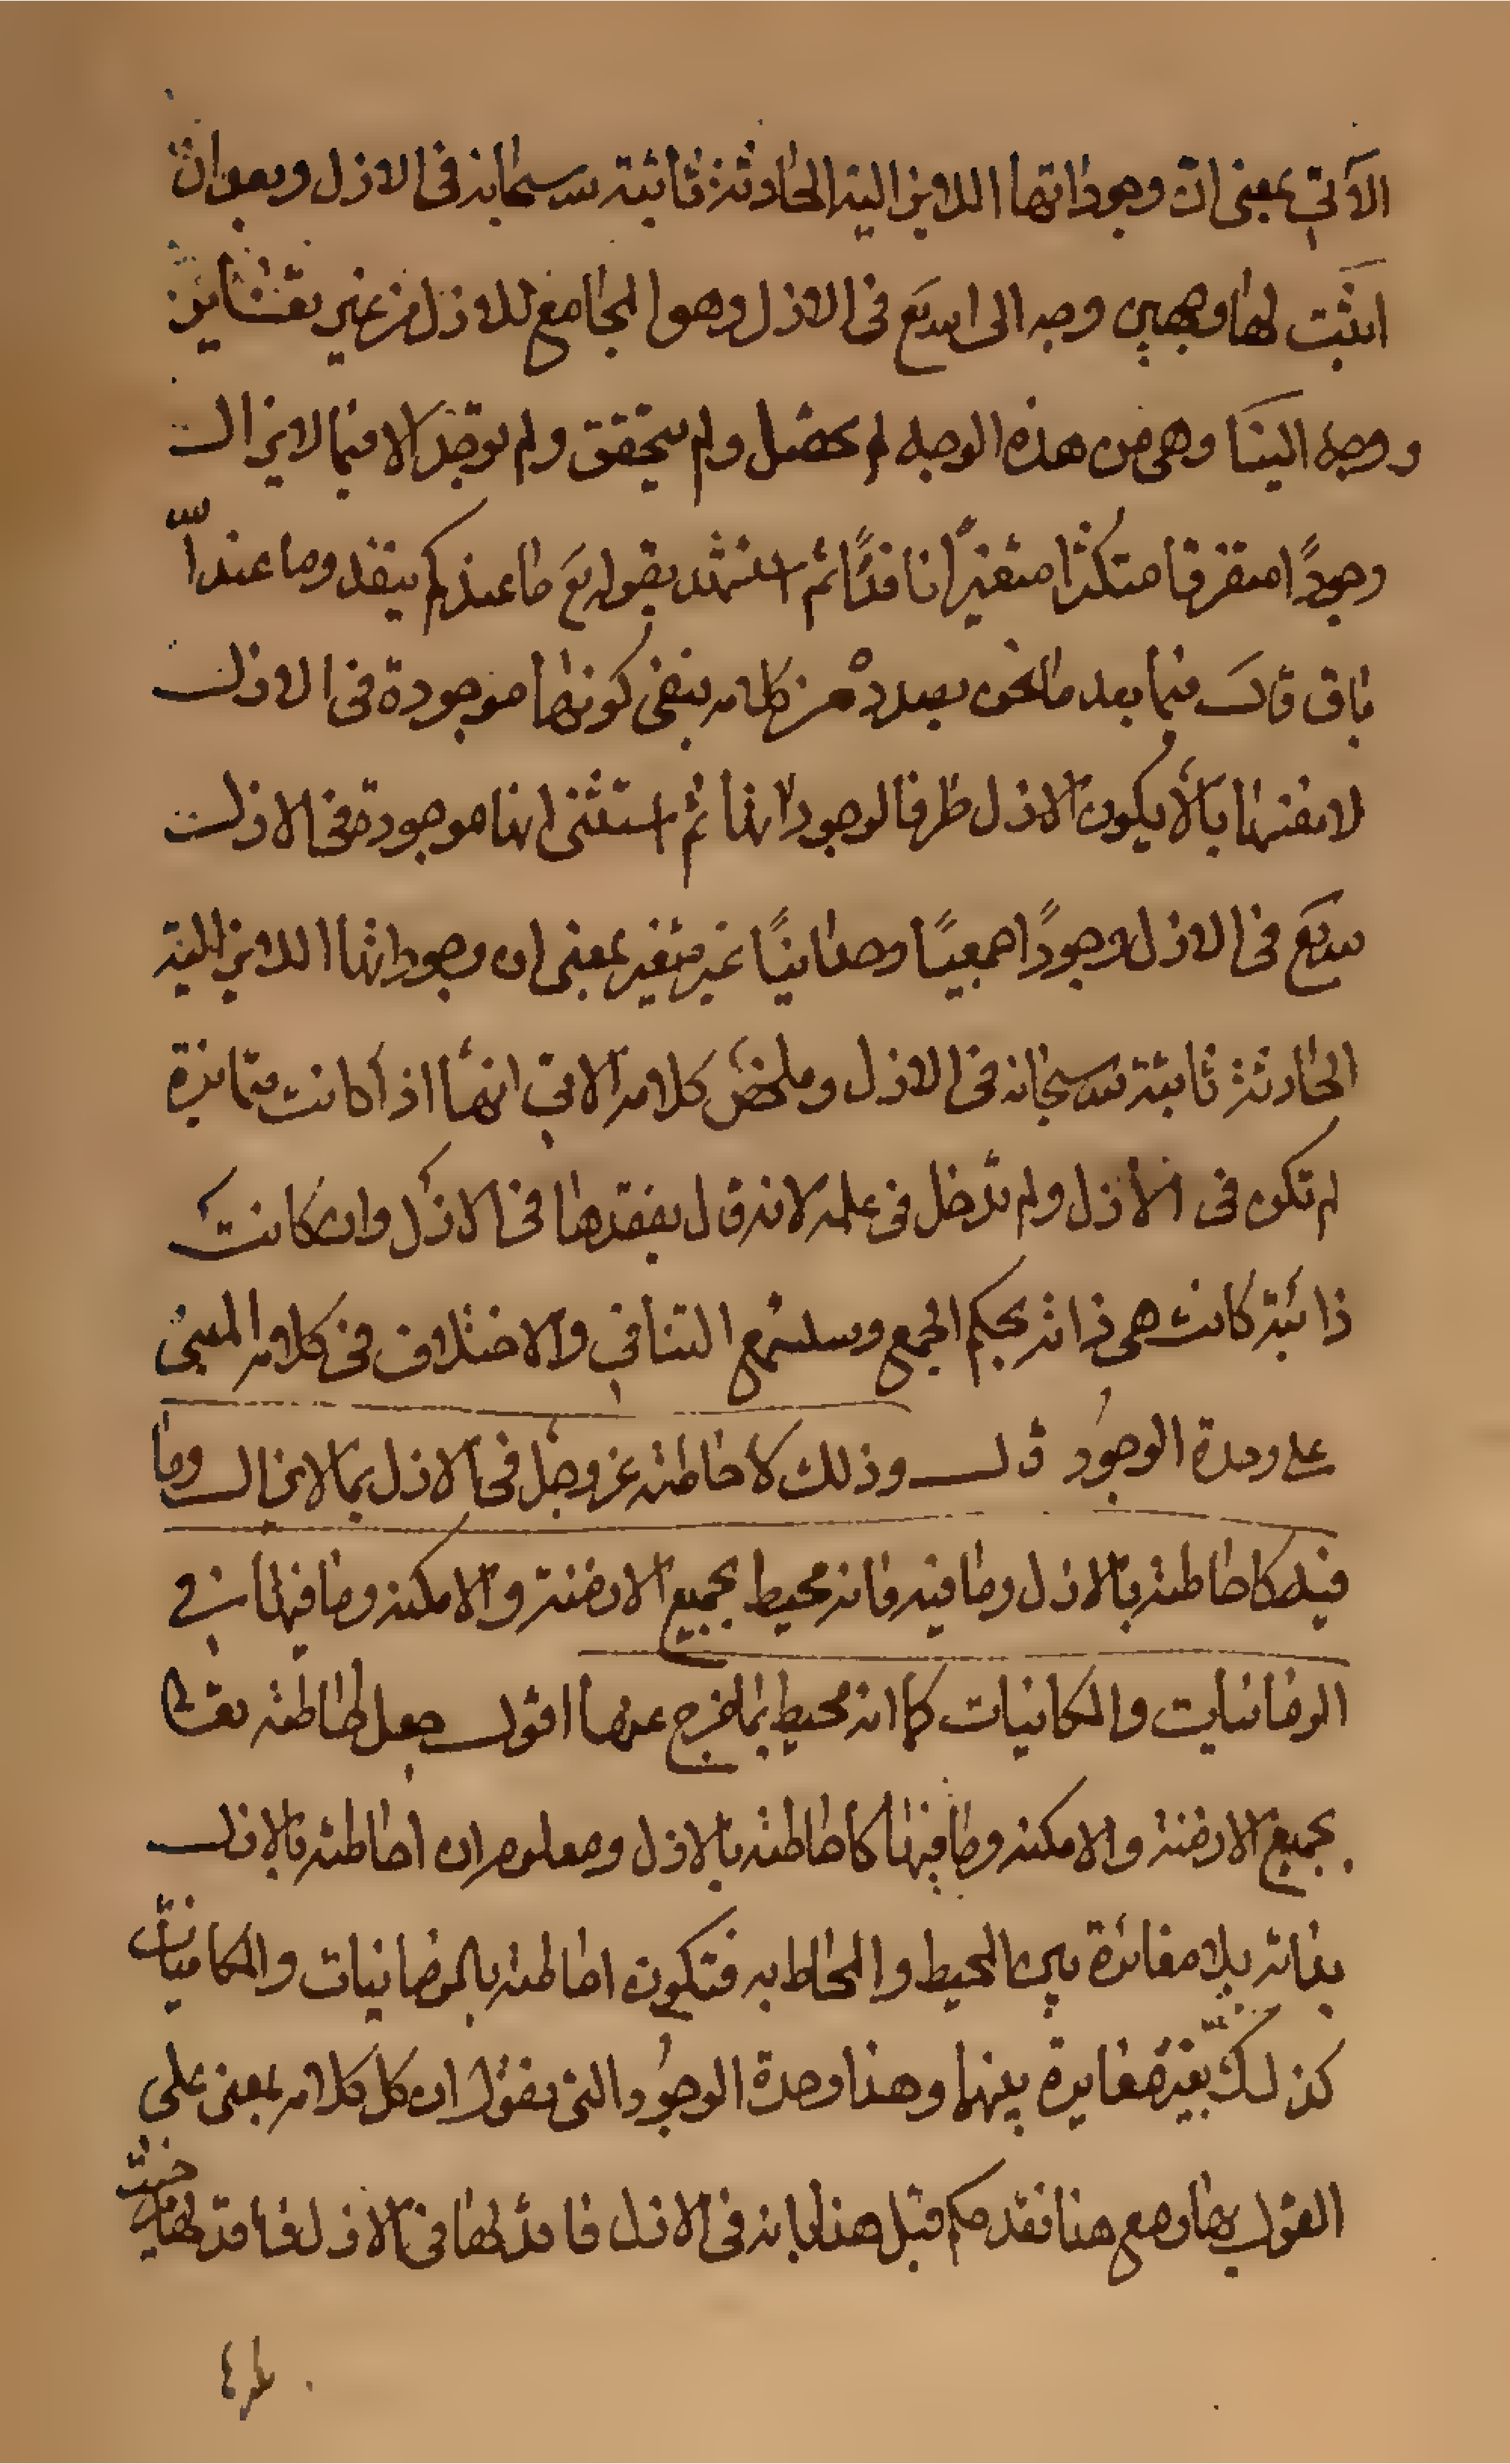 الآتي بمعنى ان وجوداتها اللايزالية الحادثة ثابتة لله سبحانه في الازل وبعد ان
اثبت لها وجهين وجه الى الله تع في الازل وهو الجامع للازل من غير تغاير
ووجه الينا وهي من هذه الوجه لم تحصل ولم يتحقق ولم توجد الا فيما لايزال
وجودًا متفرقا متكثرا متغيرًا نافدًا ثم استشهد بقوله تع ما عندكم ينفد وما عند الله
باق قال فيما بعد ما نحن بصدده من كلامه ينفي كونها موجودة في الازل
لانفسها بالا يكون الازل ظرفا لوجوداتها ثم استثنى انها موجودة في الازل
لله تع في الازل وجودًا جمعيًا وحدانيًا غير متغير بمعنى ان وجوداتها اللايزالية
الحادثة ثابتة لله سبحانه في الازل وملخص كلامه الاتي انها اذا كانت متمايزة
لم تكن في الأزل ولم تدخل في علمه لانه قال بفقدها في الازل وان كانت
ذاتية كانت هي ذاته بحكم الجمع وستسمع التنافي والاختلاف في كلامه المبني
على وحدة الوجود قال وذلك لاحاطته عز وجل في الازل بما لايزال وما
فيه كاحاطته بالازل وما فيه فانه محيط بجميع الازمنة والامكنة وما فيها من
الزمانيات والمكانيات كما انه محيط بما خرج عنها اقول جعل احاطته تعالى
بجميع الازمنة والامكنة وما فيها كاحاطته بالازل ومعلوم ان احاطته بالازل
بذاته بلا مغائرة بين المحيط والمحاط به فتكون احاطته بالزمانيات والمكانيات
كذلك بغير مغايرة بينهما وهذا وحدة الوجود التي نقول ان كل كلامه بمعنى على
القول بها ومع هذا تقدم قبل هذا بانه في الازل فاقد لها في الازل فاقد لها من حيث